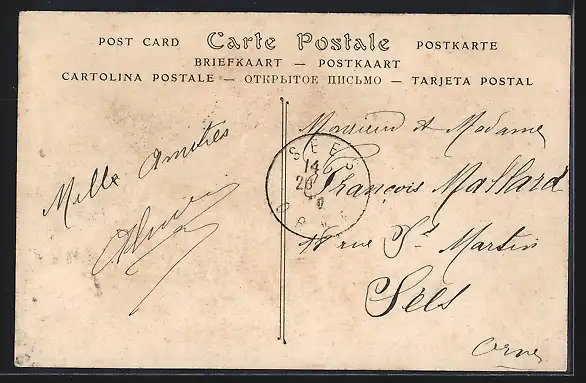 POST CARD Carte Postale POSTKARTE
BRIEFKAART — POSTKAART
CARTOLINA POSTALE — ОТКРЫТОЕ ПИСЬМО — TARJETA POSTAL
Mille Amitiés
Monsieur et Madame
François Mallard
rue St Martin
Sées
Orne
SEES
14
28
ORNE